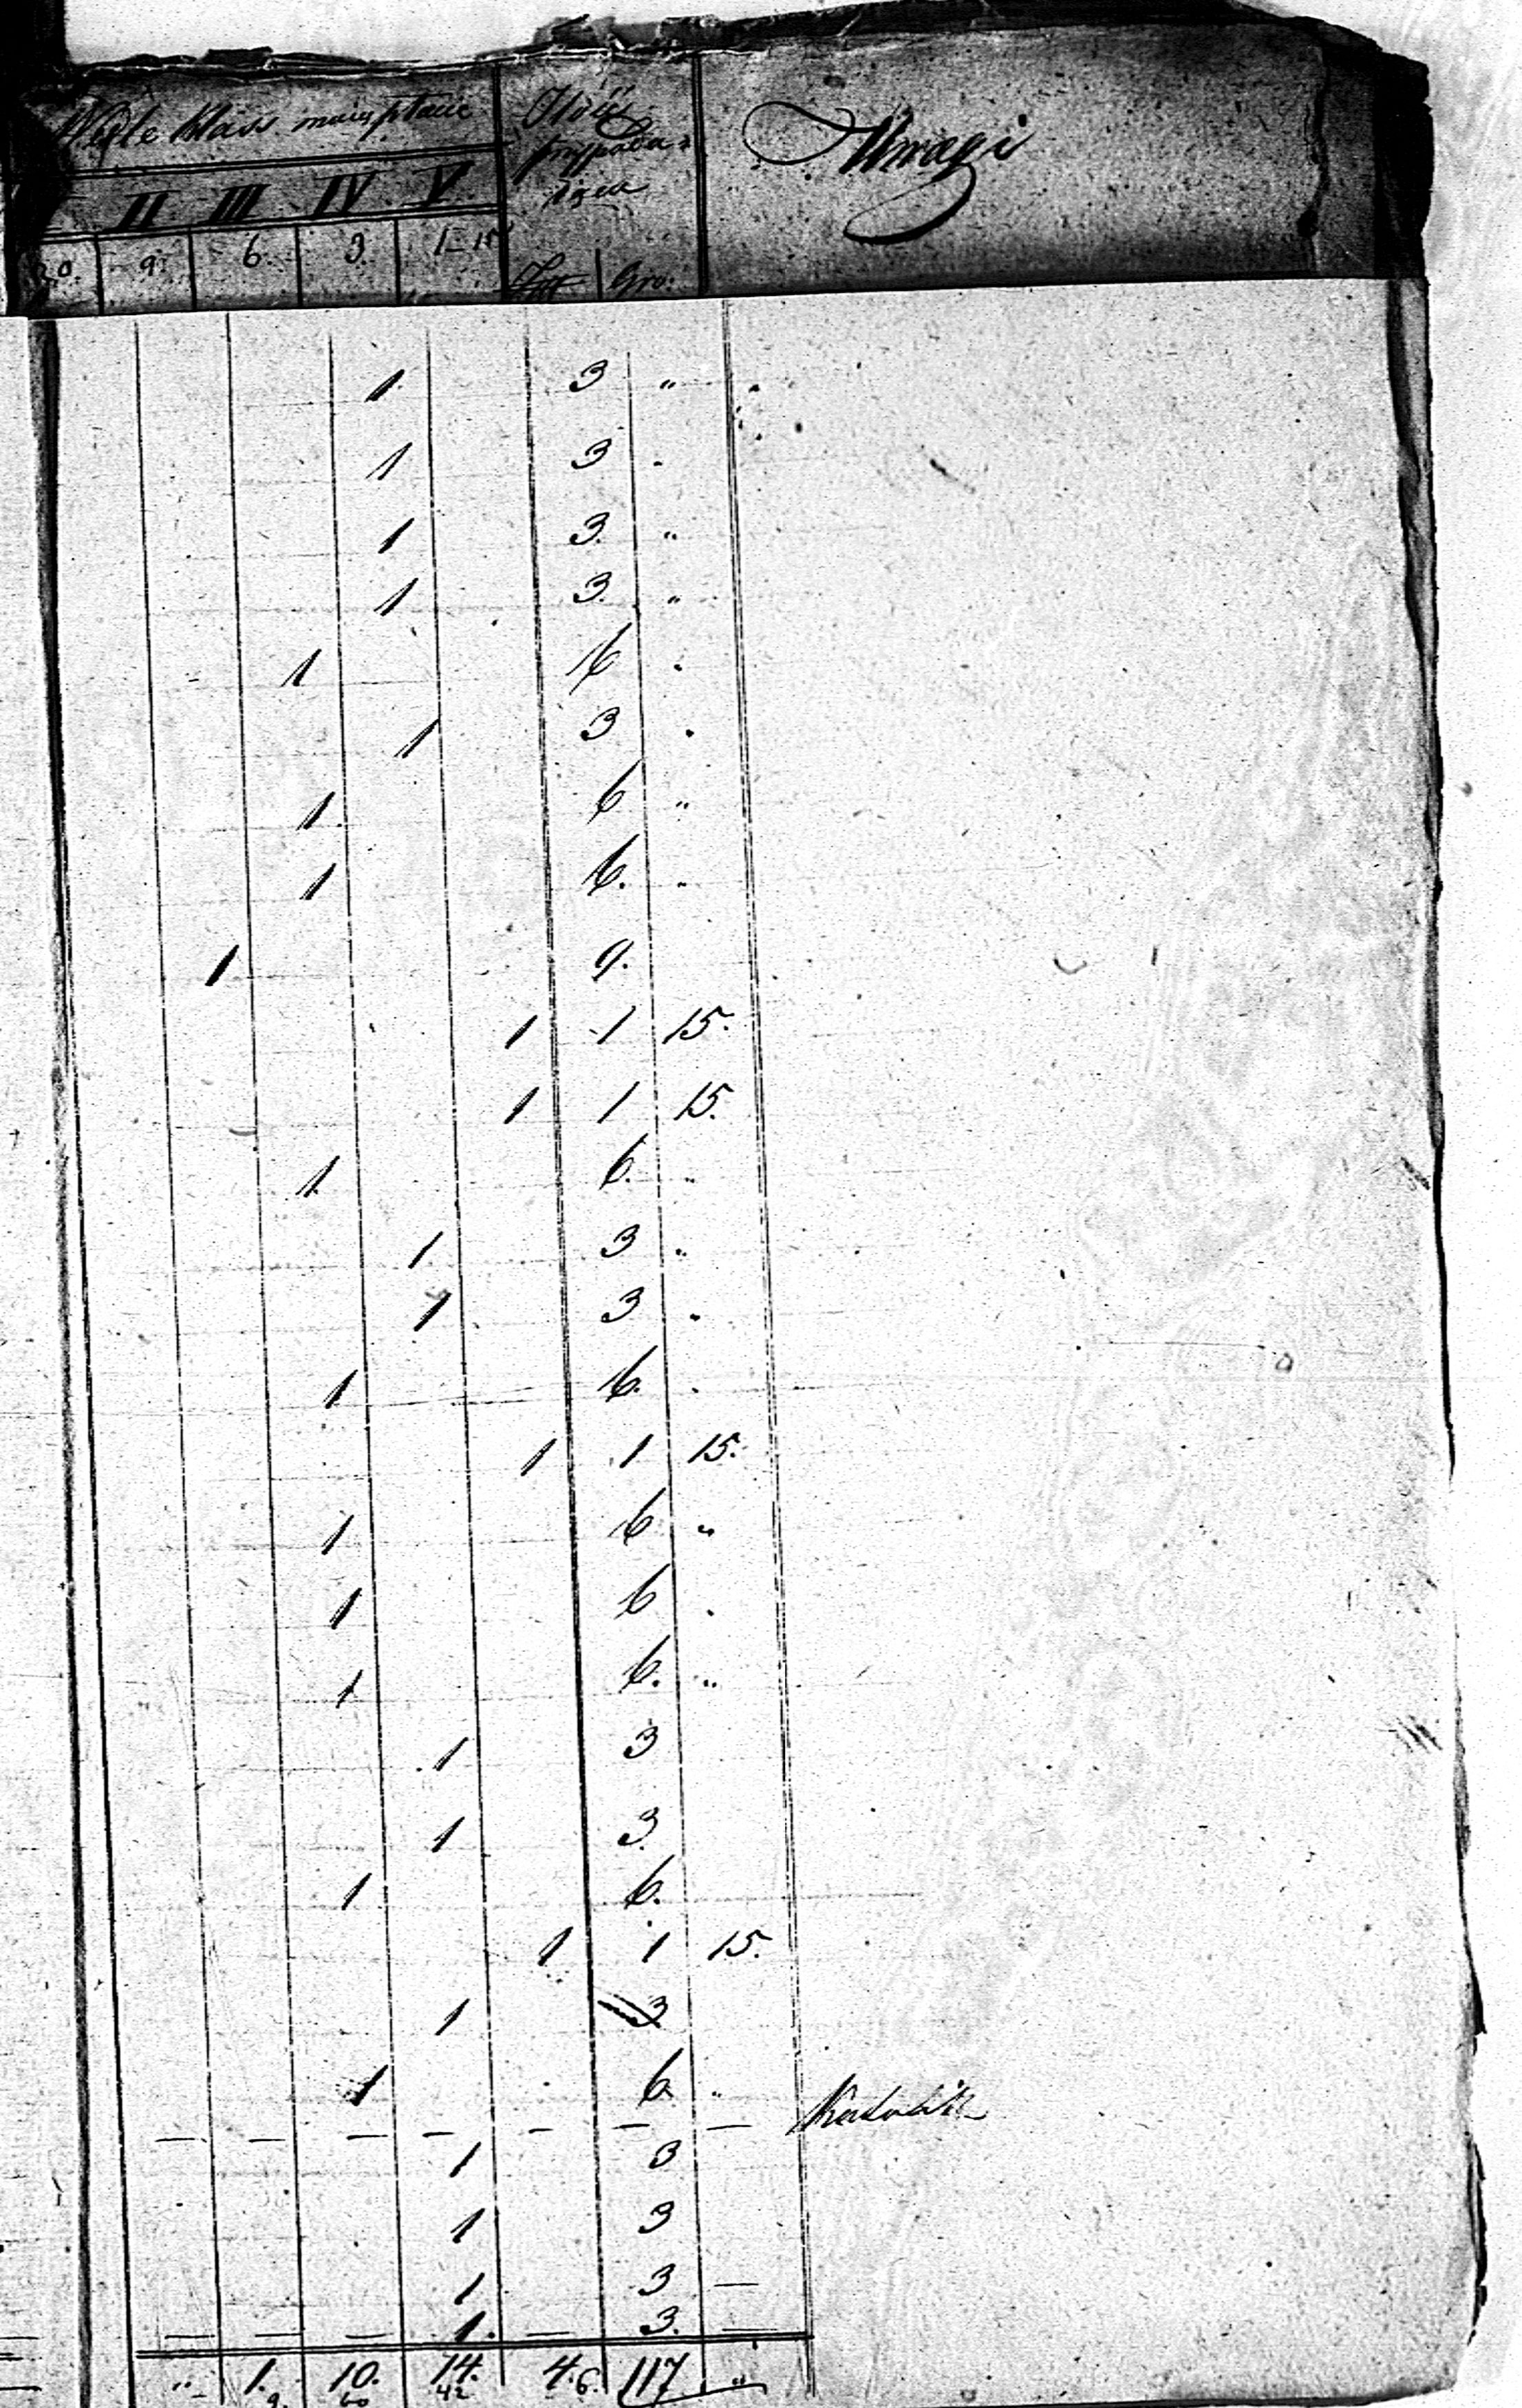 Wedle klass miejscowie Ilość Uwagi
przypada-
jąca
II III IV V
20. 9. 6. 3. 1-15 Złp Gro:
1. 3 "
1 3 .
1 3. "
1 3. "
1 6 .
1 3 .
1 6 "
1 6. "
1 9.
1 1 15.
1 1 15.
1. 6. "
1 3 "
1 3 .
1 6. .
1 1 15.
1 6 "
1 6 .
1 6. "
1 3
1 3.
1 6.
1 1 15.
1 3
1 6. "
— — — — — — —
1 3
1 3
1 3 —
— — — 1. — 3. —
" 1. 10. 14. 4. 6. 117 "
9. 60 42